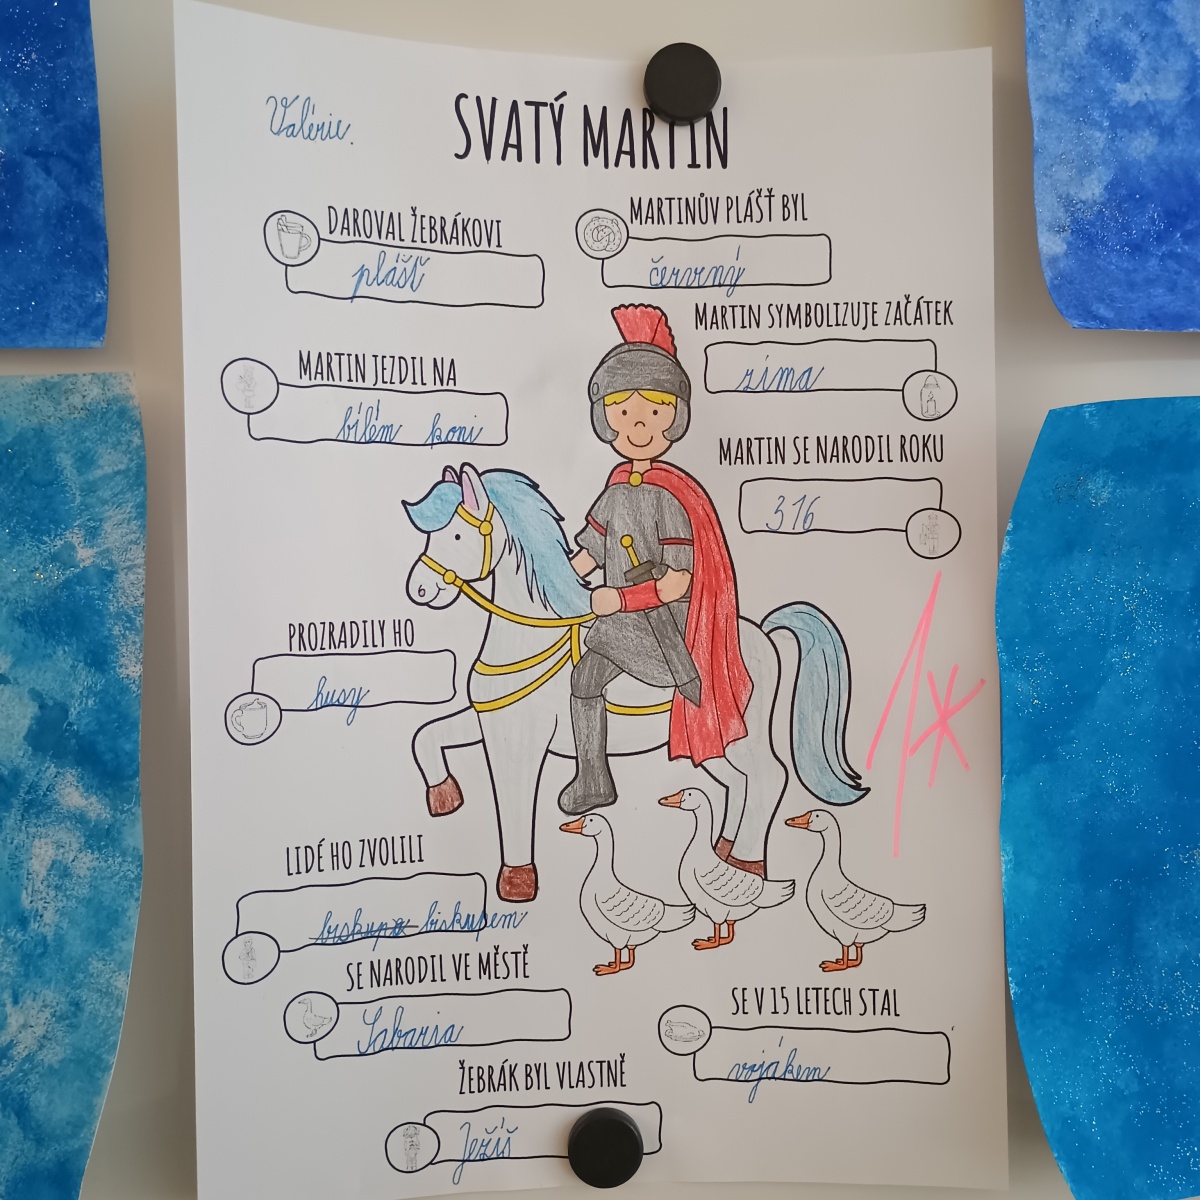 Valérie.
SVATÝ MARTIN
DAROVAL ŽEBRÁKOVI
plášť
MARTINŮV PLÁŠŤ BYL
červený
MARTIN SYMBOLIZUJE ZAČÁTEK
zima
MARTIN JEZDIL NA
bílém koni
MARTIN SE NARODIL ROKU
316
PROZRADILY HO
husy
1*
LIDÉ HO ZVOLILI
biskupa biskupem
SE NARODIL VE MĚSTĚ
Sabaria
SE V 15 LETECH STAL
vojákem
ŽEBRÁK BYL VLASTNĚ
Ježíš